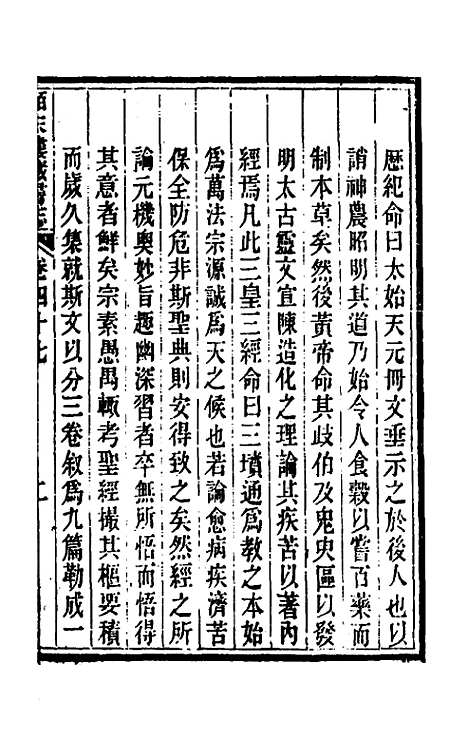 歴紀命曰太始天元冊文垂示之於後人也以
誚神農昭明其道乃始令人食穀以嘗百藥而
制本草矣然後黃帝命其歧伯及鬼臾區以發
明太古靈文宣陳造化之理論其疾苦以著內
經焉凡此三皇三經命曰三墳通爲教之本始
爲萬法宗源誠爲天之候也若論愈病疾濟苦
保全防危非斯聖典則安得致之矣然經之所
論元機奧妙旨趣幽深習者卒無所悟而悟得
其意者鮮矣宗素愚禺輒考聖經撮其樞要積
而歲久集就斯文以分三卷叙爲九篇勒成一
藏書志 卷四十七 二